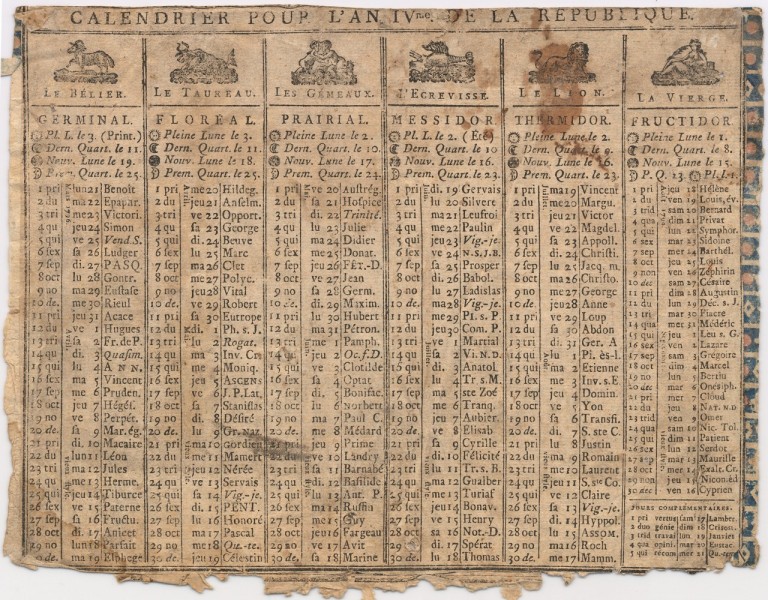 CALENDRIER POUR L'AN IVme. DE LA REPUBLIQUE.
LE BÉLIER.
GERMINAL.
Pl. L. le 3. (Print.)
Dern. Quart. le 11.
Nouv. Lune le 19.
Prem. Quart. le 25.
1 pri lun 21 Benoît
2 du ma 22 Epapar.
3 tri me 23 Victori.
4 qu jeu 24 Simon
5 qui ve 25 Vend. S.
6 sex sa 26 Ludger
7 sep di. 27 PASQ.
8 oct lu 28 Gontr.
9 no ma 29 Eustase
10 de. me 30 Rieul
11 pri jeu 31 Acace
12 du ve 1 Hugues
13 tri sa 2 Fr. de P.
14 qu di. 3 Quasim.
15 qui lu 4 ANN.
16 sex ma 5 Vincent
17 sep me 6 Pruden.
18 oct jeu 7 Hégés.
19 no ve 8 Perpét.
20 de. sa 9 Mar. ég.
21 pri di. 10 Macaire
22 du lun 11 Léon
23 tri ma 12 Jules
24 qu me 13 Herme.
25 qui jeu 14 Tiburce
26 sex ve 15 Paterne
27 sep sa 16 Fructu.
28 oct di. 17 Anicet
29 no lun 18 Parfait
30 de. ma 19 Elphege
LE TAUREAU.
FLORÉAL.
Pleine Lune le 3.
Dern. Quart. le 11.
Nouv. Lune le 18.
Prem. Quart. le 25.
1 pri me 20 Hildeg.
2 du jeu 21 Anselm.
3 tri ve 22 Opport.
4 qu sa 23 George
5 qui di. 24 Beuve
6 sex lu 25 Marc
7 sep ma 26 Clet
8 oct me 27 Polyc.
9 no jeu 28 Vital
10 de. ve 29 Robert
11 pri sa 30 Eutrope
12 du di. 1 Ph. s. J.
13 tri lu 2 Rogat.
14 qu ma 3 Inv. Cr.
15 qui me 4 Moniq.
16 sex jeu 5 ASCENS
17 sep ve 6 J. P. Lat.
18 oct sa 7 Stanislas
19 no di. 8 Désiré
20 de. lu 9 Gr. Naz.
21 pri ma 10 Gordien
22 du me 11 Mamert
23 tri jeu 12 Nérée
24 qu ve 13 Servais
25 qui sa 14 Vig-je.
26 sex di. 15 PENT.
27 sep lu 16 Honoré
28 oct ma 17 Pascal
29 no me 18 Qu-te.
30 de. jeu 19 Célestin
LES GÉMEAUX.
PRAIRIAL.
Pleine Lune le 2.
Dern. Quart. le 10.
Nouv. Lune le 17.
Prem. Quart. le 24.
1 pri ve 20 Austrég.
2 du sa 21 Hospice
3 tri di. 22 Trinité.
4 qu lu 23 Julie
5 qui ma 24 Didier
6 sex me 25 Donat.
7 sep jeu 26 FÊT.-D.
8 oct ve 27 Jean
9 no sa 28 Germ.
10 de. di. 29 Maxim.
11 pri lu 30 Hubert
12 du ma 31 Pétron.
13 tri me 1 Pamph.
14 qu jeu 2 Oc. f. D.
15 qui ve 3 Clotilde
16 sex sa 4 Optat
17 sep di. 5 Bonifac.
18 oct lu 6 Norbert
19 no ma 7 Paul C.
20 de. me 8 Médard
21 pri jeu 9 Prime
22 du ve 10 Landry
23 tri sa 11 Barnabé
24 qu di. 12 Basilide
25 qui lu 13 Ant. P.
26 sex ma 14 Ruffin
27 sep me 15 Guy
28 oct jeu 16 Fargeau
29 no ve 17 Avit
30 de. sa 18 Marine
L'ECREVISSE.
MESSIDOR
Pl. L. le 2. (Été)
Dern. Quart. le 10
Nouv. Lune le 16.
Prem. Quart. le 23.
1 pri di. 19 Gervais
2 du lu 20 Silvere
3 tri ma 21 Leufroi
4 qu me 22 Paulin
5 qui jeu 23 Vig.-je.
6 sex ve 24 N.S.J.B.
7 sep sa 25 Prosper
8 oct di. 26 Babol.
9 no lu 27 Ladislas
10 de. ma 28 Vig.-je.
11 pri me 29 Pi. s. P.
12 du jeu 30 Com. P.
13 tri ve 1 Martial
14 qu sa 2 Vi. N. D.
15 qui di. 3 Anatol.
16 sex lu 4 Tr. s. M.
17 sep ma 5 ste Zoé
18 oct me 6 Tranq.
19 no jeu 7 Aubier.
20 de. ve 8 Elisab
21 pri sa 9 Cyrille
22 du di. 10 Félicité
23 tri lu 11 Tr. s. B.
24 qu ma 12 Gualber
25 qui me 13 Turiaf
26 sex jeu 14 Bonav.
27 sep ve 15 Henry
28 oct sa 16 Not.-D.
29 no di. 17 Spérat
30 de. lu 18 Thomas
LE LION.
THERMIDOR.
Pleine Lune le 2.
Dern. Quart. le 9.
Nouv. Lune le 16.
Prem. Quart. le 23.
1 pri ma 19 Vincent
2 du me 20 Margu.
3 tri jeu 21 Victor
4 qu ve 22 Magdel.
5 qui sa 23 Appoll.
6 sex di. 24 Christi.
7 sep lu 25 Jacq. m.
8 oct ma 26 Christo.
9 no me 27 George
10 de. jeu 28 Anne
11 pri ve 29 Loup
12 du sa 30 Abdon
13 tri di. 31 Ger. A
14 qu lu 1 Pi. ès-l.
15 qui ma 2 Etienne
16 sex me 3 Inv. s. E
17 sep jeu 4 Domin.
18 oct ve 5 Yon
19 no sa 6 Transfi.
20 de. di. 7 S. ste C.
21 pri lu 8 Justin
22 du ma 9 Romain
23 tri me 10 Laurent
24 qu jeu 11 S. ste Co.
25 qui ve 12 Claire
26 sex sa 13 Vig.-je.
27 sep di. 14 Hyppol.
28 oct lu 15 ASSOM.
29 no ma 16 Roch
30 de. me 17 Mamm.
LA VIERGE.
FRUCTIDOR
Pleine Lune le 1.
Dern. Quart. le 8.
Nouv. Lune le 15.
P. Q. 23.
1 pri jeu 18 Hélène
2 du ven 19 Louis, év.
3 trid sam 20 Bernard
4 qua dim 21 Privat
5 qui lun 22 Symphor.
6 sex mar 23 Sidoine
7 sep mer 24 Barthél.
8 oct jeu 25 Louis
9 non ven 26 Zéphirin
10 déc sam 27 Césaire
11 pri dim 28 Augustin
12 du lun 29 Déc. s. J.
13 trid mar 30 Fiacre
14 qua mer 31 Médéric
15 qui jeu 1 Leu s. G.
16 sex ven 2 Lazare
17 sep sam 3 Grégoire
18 oct dim 4 Marcel
19 non lun 5 Bertin
20 déc mar 6 Onésiph.
21 pri mer 7 Cloud
22 du jeu 8 NAT. N. D
23 trid ven 9 Omer
24 qua sam 10 Nic. Tol.
25 qui dim 11 Patient
26 sex lun 12 Serdot
27 sep mar 13 Maurille
28 oct mer 14 Exalt. Cr.
29 non jeu 15 Nicom. éd
30 déc ven 16 Cyprien
JOURS COMPLÉMENTAIRES.
1 pri vertus sam 17 Lamber.
2 duo génie dim 18
3 trid travai lun 19 Janvier
4 qua opini. mar 20 Eustac.
5 qui récom mer 21 Qu-temp